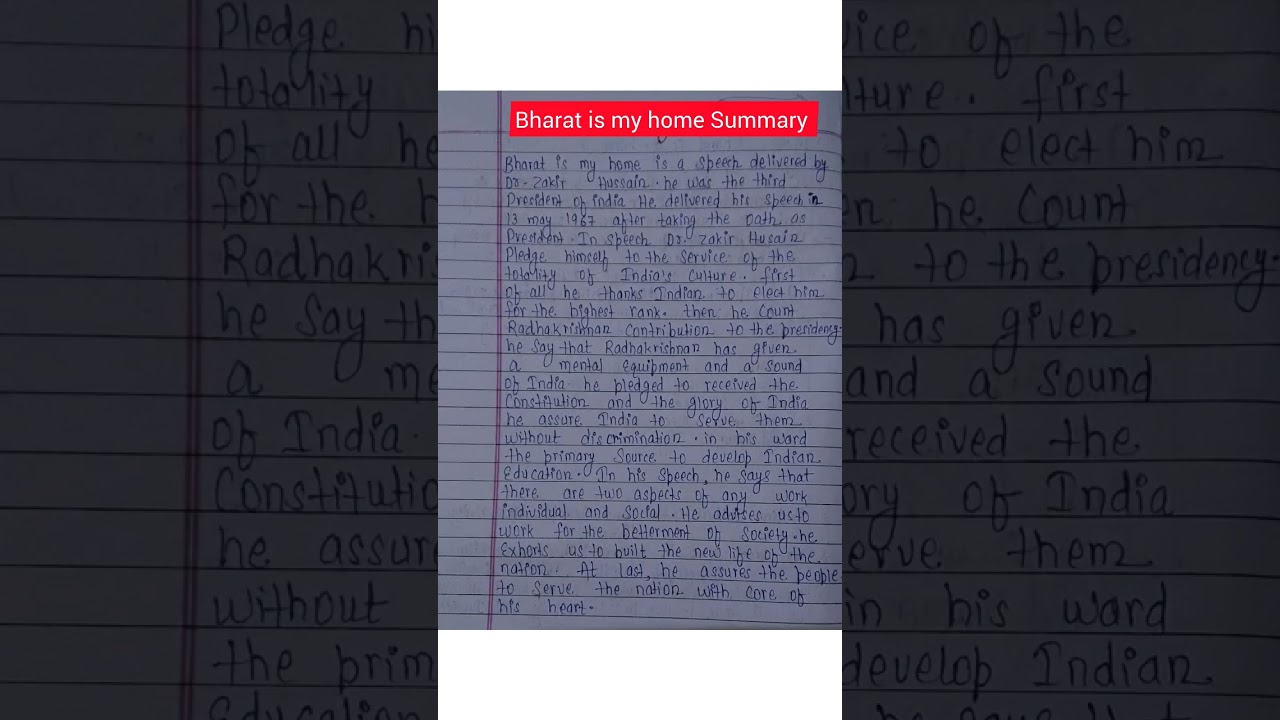 Bharat is my home Summary
Bharat is my home is a speech delivered by
Dr. Zakir Hussain. he was the third
President of india He delivered his speech in
13 may 1967 after taking the oath as
President. In speech Dr. Zakir Husain
Pledge himself to the service of the
totality of India's culture. first
of all he thanks Indian to elect him
for the highest rank. then he count
Radhakrishnan contribution to the presidency.
he say that Radhakrishnan has given
a mental equipment and a sound
of India. he pledged to received the
Constitution and the glory of India
he assure India to serve them
without discrimination. in his ward
the primary source to develop Indian
Education. In his speech, he says that
there are two aspects of any work
individual and social. He advises us to
work for the betterment of society. he
Exhorts us to built the new life of the
nation. At last, he assures the people
to serve the nation with core of
his heart.